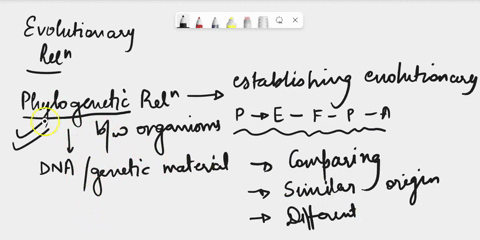 Evolutionary
Relⁿ
Phylogenetic Relⁿ → establishing evolutionary
b/w organisms
P → E - F - P - A
DNA / genetic material
→ Comparing
→ Similar origin
→ Different